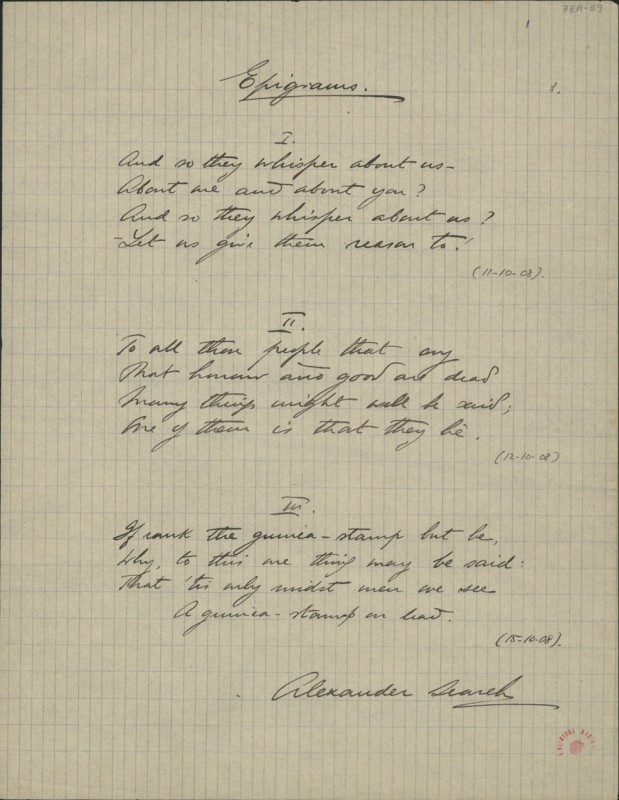 78A-59
1
Epigrams.
1.
I.
And so they whisper about us –
About me and about you?
And so they whisper about us?
– Let us give them reason to!
(11-10-08).
II.
To all those people that cry
That honour and good are dead
Many things might well be said;
One of them is that they lie.
(12-10-08)
III.
If rank the guinea-stamp but be,
Why, to this one thing may be said:
That 'tis only midst men we see
A guinea-stamp on lead.
(15-10-08).
Alexander Search